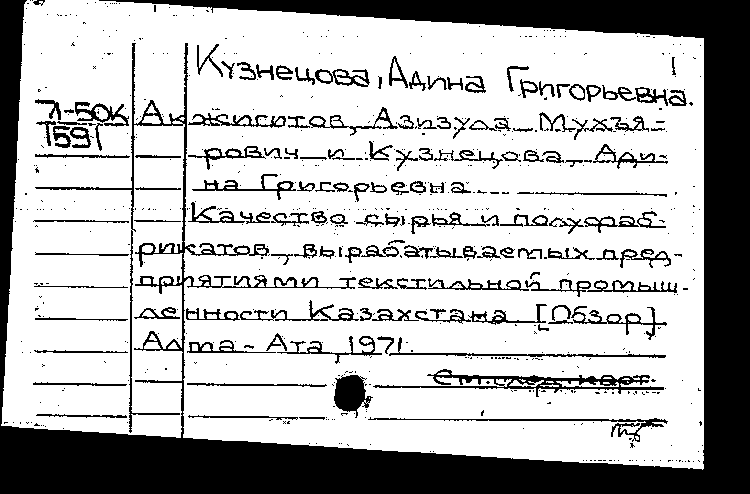 1
Кузнецова, Адина Григорьевна.
Л-50К Акжигитов, Азизула Мухъя-
1591
рович и Кузнецова, Ади-
на Григорьевна.
Качество сырья и полуфаб-
рикатов, вырабатываемых пред-
приятиями текстильной промыш-
ленности Казахстана [Обзор]
Алма-Ата, 1971.
См. след. карт.